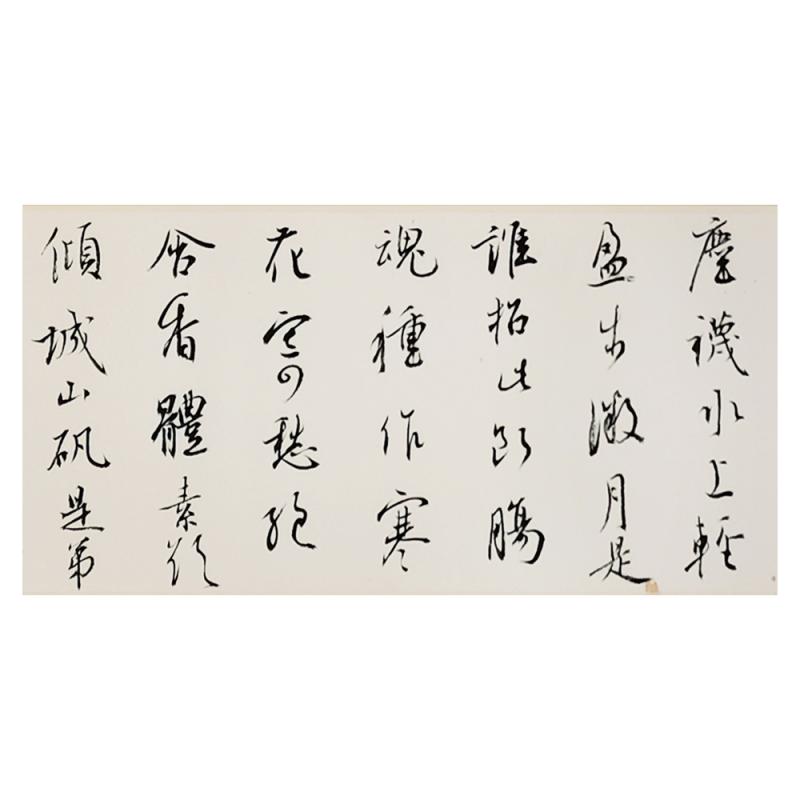 塵襪水上輕
盈步微月是
誰招此斷腸
魂種作寒
花寄愁絕
含香體素欲
傾城山矾是弟